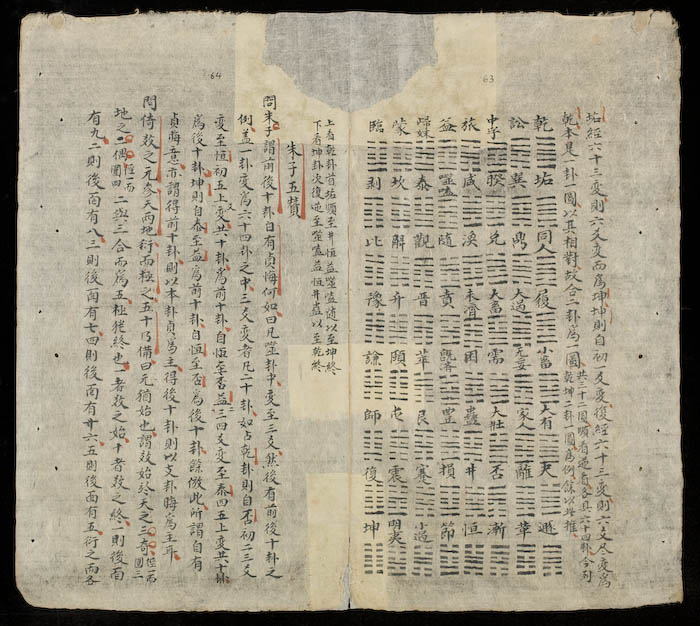 63
姤經六十三變則六爻變而爲坤坤則自初一爻變復經六十三變則六爻盡變爲
乾本是一卦一圖以其相對故合二卦爲一圖
共三十二圖順看逆看各具六十四卦今列
乾坤二卦一圖爲例餘以此推
乾 姤 同人 履 小畜 大有 夬 遯
訟 巽 鼎 大過 无妄 家人 離 革
中孚 睽 兌 大畜 需 大壯 否 漸
旅 咸 渙 未濟 困 蠱 井 恒
益 噬嗑 隨 賁 旣濟 豊 損 節
歸妹 泰 觀 晋 萃 艮 蹇 小過
蒙 坎 解 升 頤 屯 震 明夷
臨 剥 比 豫 謙 師 復 坤
上看乾卦首姤順至井恒益噬嗑隨以至坤終
下看坤卦次復逆至噬嗑益恒井蠱以至乾終
64
朱子五贊
問朱子謂前後十卦曰有貞悔何如曰凡筮卦中變至三爻然後有前後十卦之
例盖一卦變爲六十四卦之中三爻變者凡二十卦如占乾卦則自否初二三爻
變至恒初五上爻變共十卦爲前十卦自益二三四爻變至泰四五上變共十卦
爲後十卦坤則自泰至益爲前十卦自恒至否爲後十卦餘倣此所謂自有
貞晦意亦謂得前十卦則以本卦貞爲主得後十卦則以支卦晦爲主耳
問倚數之元參天兩地衍而極之五十乃備曰元猶始也謂數始於天之三奇徑一而圍三
地之二偶徑一而圍四二與三合而爲五極猶終也一者數之始十者數之終一則後面
有九二則後面有八三則後面有七四則後面有六五則後面有五衍之而各